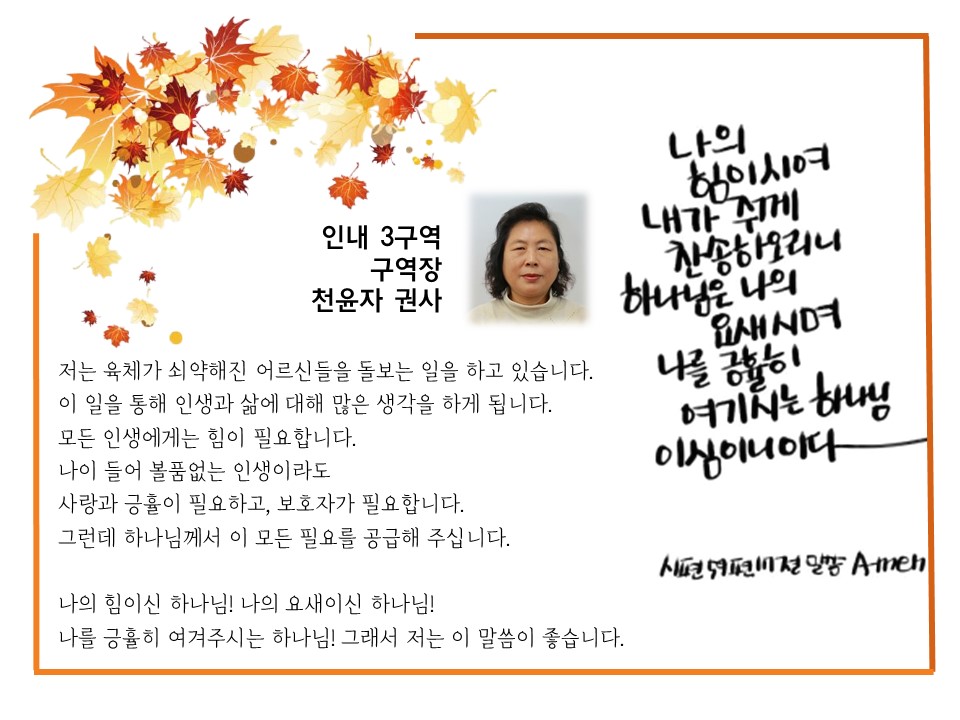 인내 3구역
구역장
천윤자 권사
저는 육체가 쇠약해진 어르신들을 돌보는 일을 하고 있습니다.
이 일을 통해 인생과 삶에 대해 많은 생각을 하게 됩니다.
모든 인생에게는 힘이 필요합니다.
나이 들어 볼품없는 인생이라도
사랑과 긍휼이 필요하고, 보호자가 필요합니다.
그런데 하나님께서 이 모든 필요를 공급해 주십니다.
나의 힘이신 하나님! 나의 요새이신 하나님!
나를 긍휼히 여겨주시는 하나님! 그래서 저는 이 말씀이 좋습니다.
나의
힘이시여
내가 주께
찬송하오리니
하나님은 나의
요새시며
나를 긍휼히
여기시는 하나님
이심이니이다
시편 59편 17절 말씀 A-men